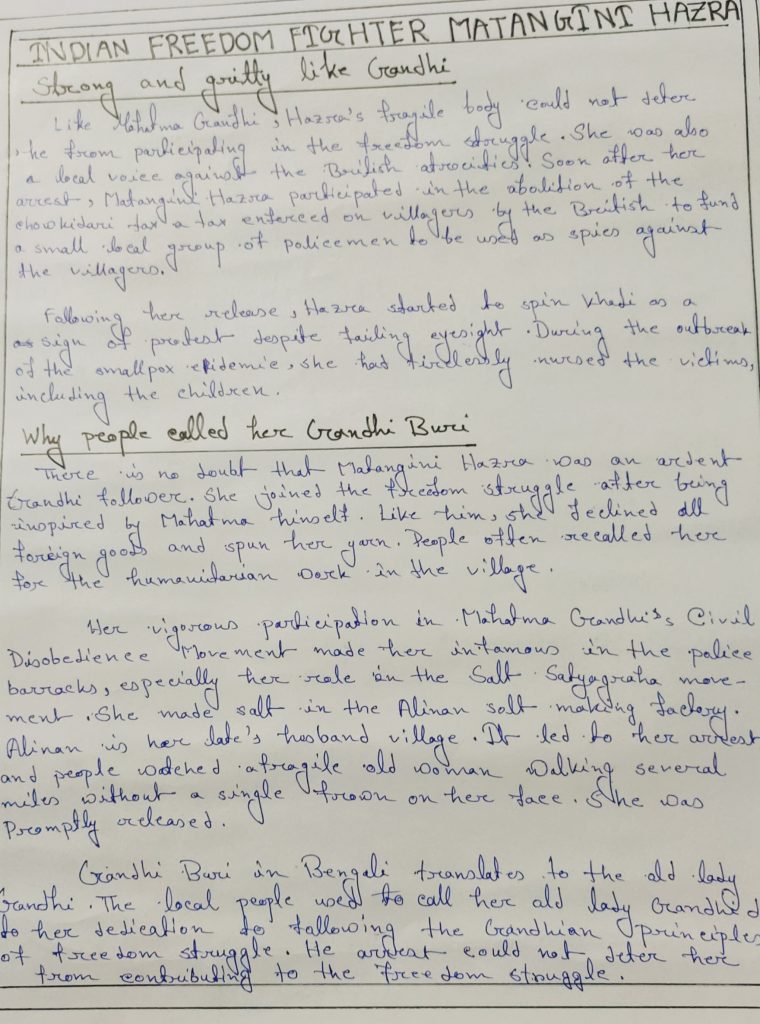 INDIAN FREEDOM FIGHTER MATANGINI HAZRA
Strong and gritty like Gandhi
Like Mahatma Gandhi, Hazra's fragile body could not deter
he from participating in the freedom struggle. She was also
a local voice against the British atrocities. Soon after her
arrest, Matangini Hazra participated in the abolition of the
chowkidari tax a tax enforced on villagers by the British to fund
a small local group of policemen to be used as spies against
the villagers.
Following her release, Hazra started to spin Khadi as a
as sign of protest despite failing eyesight. During the outbreak
of the smallpox epidemic, she had tirelessly nursed the victims,
including the children.
Why people called her Gandhi Buri
There is no doubt that Matangini Hazra was an ardent
Gandhi follower. She joined the freedom struggle after being
inspired by Mahatma himself. Like him, she declined all
foreign goods and spun her yarn. People often recalled her
for the humanitarian work in the village.
Her vigorous participation in Mahatma Gandhi's Civil
Disobedience Movement made her infamous in the police
barracks, especially her role in the Salt Satyagraha move-
ment. She made salt in the Alinan salt making factory.
Alinan is her late's husband village. It led to her arrest
and people watched a fragile old woman walking several
miles without a single frown on her face. She was
Promptly released.
Gandhi Buri in Bengali translates to the old lady
Gandhi. The local people used to call her old lady Gandhi d
to her dedication to following the Gandhian principles
of freedom struggle. He arrest could not deter her
from contributing to the freedom struggle.